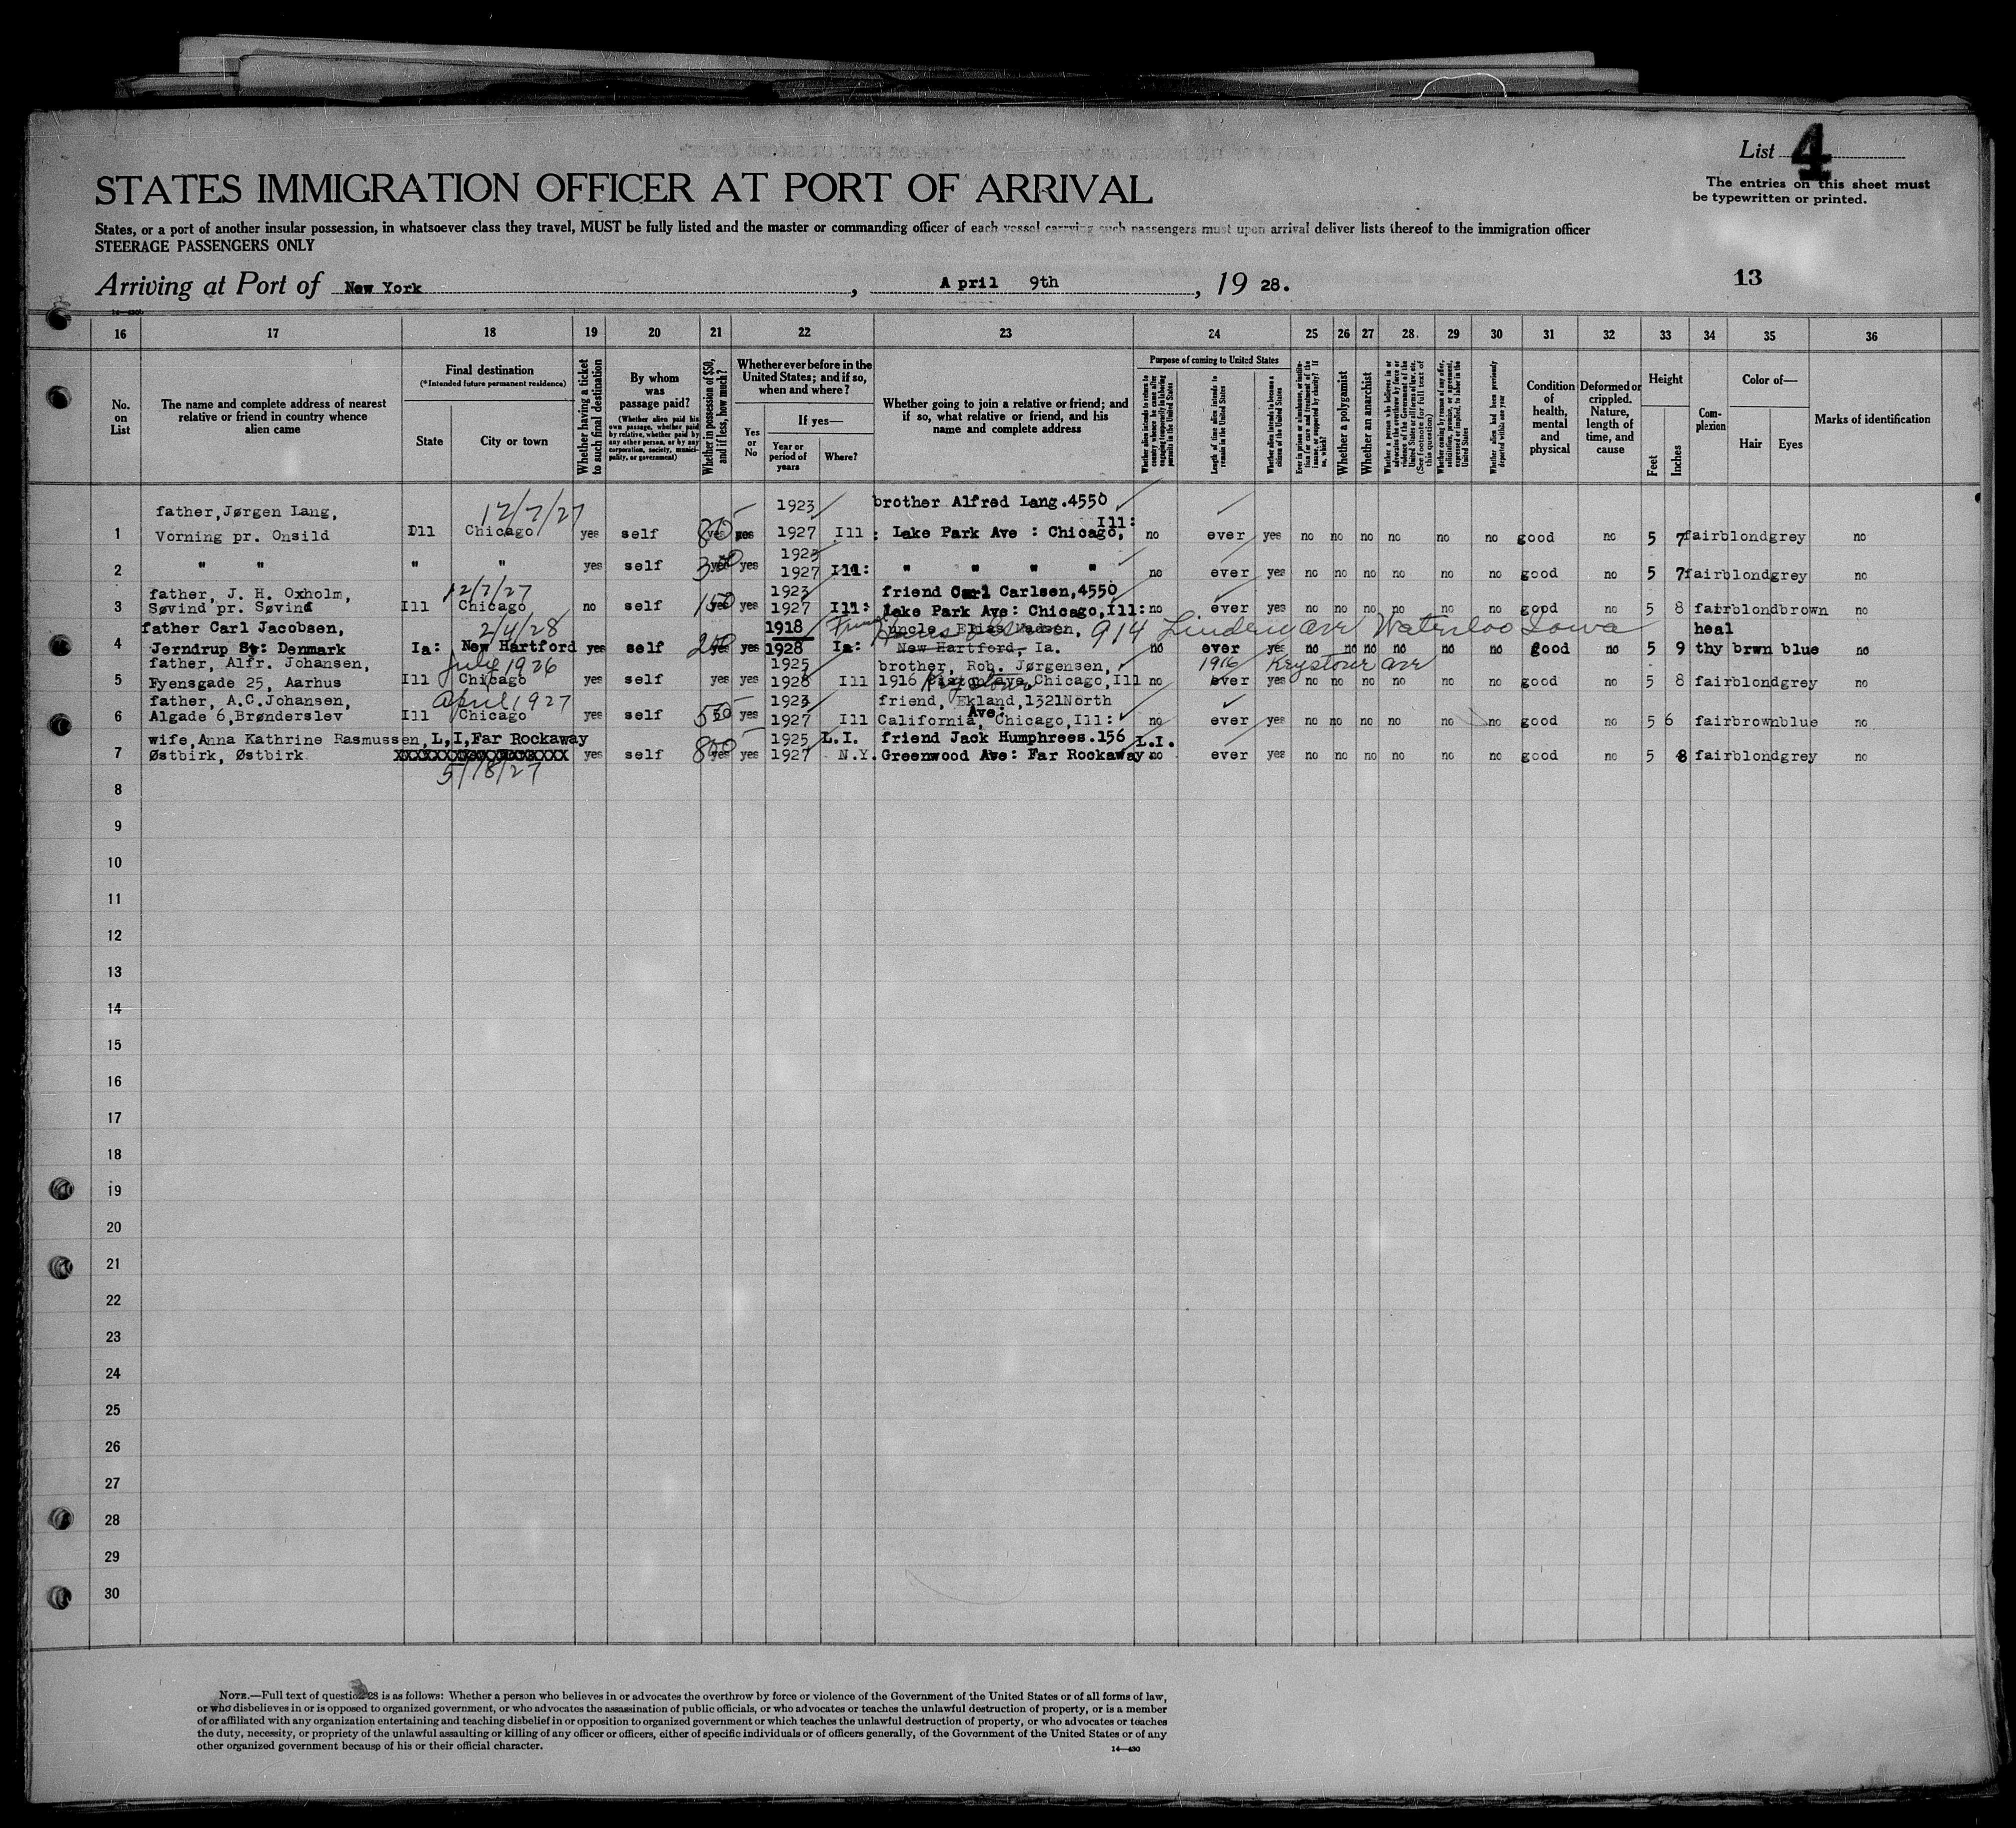 List 4
The entries on this sheet must
be typewritten or printed.
STATES IMMIGRATION OFFICER AT PORT OF ARRIVAL
States, or a port of another insular possession, in whatsoever class they travel, MUST be fully listed and the master or commanding officer of each vessel carrying such passengers must upon arrival deliver lists thereof to the immigration officer
STEERAGE PASSENGERS ONLY
Arriving at Port of New York, April 9th, 19 28.
13
16 17 18 19 20 21 22 23 24 25 26 27 28. 29 30 31 32 33 34 35 36
No.
on
List
The name and complete address of nearest
relative or friend in country whence
alien came
Final destination
(*Intended future permanent residence)
State
City or town
Whether having a ticket
to such final destination
By whom
was
passage paid?
(Whether alien paid his
own passage, whether paid
by relative, whether paid by
any other person, or by any
corporation, society, munici-
pality, or government)
Whether in possession of $50,
and if less, how much?
Whether ever before in the
United States; and if so,
when and where?
If yes—
Yes
or
No
Year or
period of
years
Where?
Whether going to join a relative or friend; and
if so, what relative or friend, and his
name and complete address
Purpose of coming to United States
Length of time alien intends to
remain in the United States
Whether alien intends to become a
citizen of the United States
Whether a polygamist
Whether an anarchist
Condition
of
health,
mental
and
physical
Deformed or
crippled.
Nature,
length of
time, and
cause
Height
Feet
Inches
Com-
plexion
Color of—
Hair
Eyes
Marks of identification
father, Jørgen Lang, 12/7/27 1923 brother Alfred Lang.4550
1 Vorning pr. Onsild Ill Chicago yes self 80 yes yes 1927 Ill : Lake Park Ave : Chicago, Ill: no ever yes no no no no no no good no 5 7 fair blond grey no
1923
2 " " " " yes self yes yes 1927 Ill: " " " " no ever yes no no no no no no good no 5 7 fair blond grey no
father, J. H. Oxholm, 12/7/27 1923 friend Carl Carlsen,4550
3 Søvind pr. Søvind Ill Chicago no self 150 yes yes 1927 Ill: Lake Park Ave: Chicago,Ill: no ever yes no no no no no no good no 5 8 fair blond brown no
father Carl Jacobsen, 2/4/28 1918 Uncle, Elias Madsen, 914 Linden Ave Waterloo Iowa heal
4 Jerndrup St: Denmark Ia: New Hartford yes self 200 yes yes 1928 Ia: New Hartford, Ia. no ever yes no no no no no no good no 5 9 thy brwn blue no
father, Alfr. Johansen, July 1926 1925 brother, Rob. Jørgensen, 1916 Keystone ave
5 Fyensgade 25, Aarhus Ill Chicago yes self yes yes 1928 Ill 1916 Keystone Ave, Chicago, Ill no ever yes no no no no no no good no 5 8 fair blond grey no
father, A.C.Johansen, April 1927 1923 friend, Ekland,1321North
6 Algade 6,Brønderslev Ill Chicago yes self 550 yes 1927 Ill California, Ave: Chicago,Ill: no ever yes no no no no no no good no 5 6 fair brown blue no
wife,Anna Kathrine Rasmussen, L,I,Far Rockaway 1925 L.I. friend Jack Humphrees.156 L.I.
7 Østbirk, Østbirk yes self 800 yes yes 1927 N.Y. Greenwood Ave: Far Rockaway no ever yes no no no no no no good no 5 8 fair blond grey no
5/18/27
8
9
10
11
12
13
14
15
16
17
18
19
20
21
22
23
24
25
26
27
28
29
30
NOTE.—Full text of question 28 is as follows: Whether a person who believes in or advocates the overthrow by force or violence of the Government of the United States or of all forms of law,
or who disbelieves in or is opposed to organized government, or who advocates the assassination of public officials, or who advocates or teaches the unlawful destruction of property, or is a member
of or affiliated with any organization entertaining and teaching disbelief in or opposition to organized government or which teaches the unlawful destruction of property, or who advocates or teaches
the duty, necessity, or propriety of the unlawful assaulting or killing of any officer or officers, either of specific individuals or of officers generally, of the Government of the United States or of any
other organized government because of his or their official character.
14—430